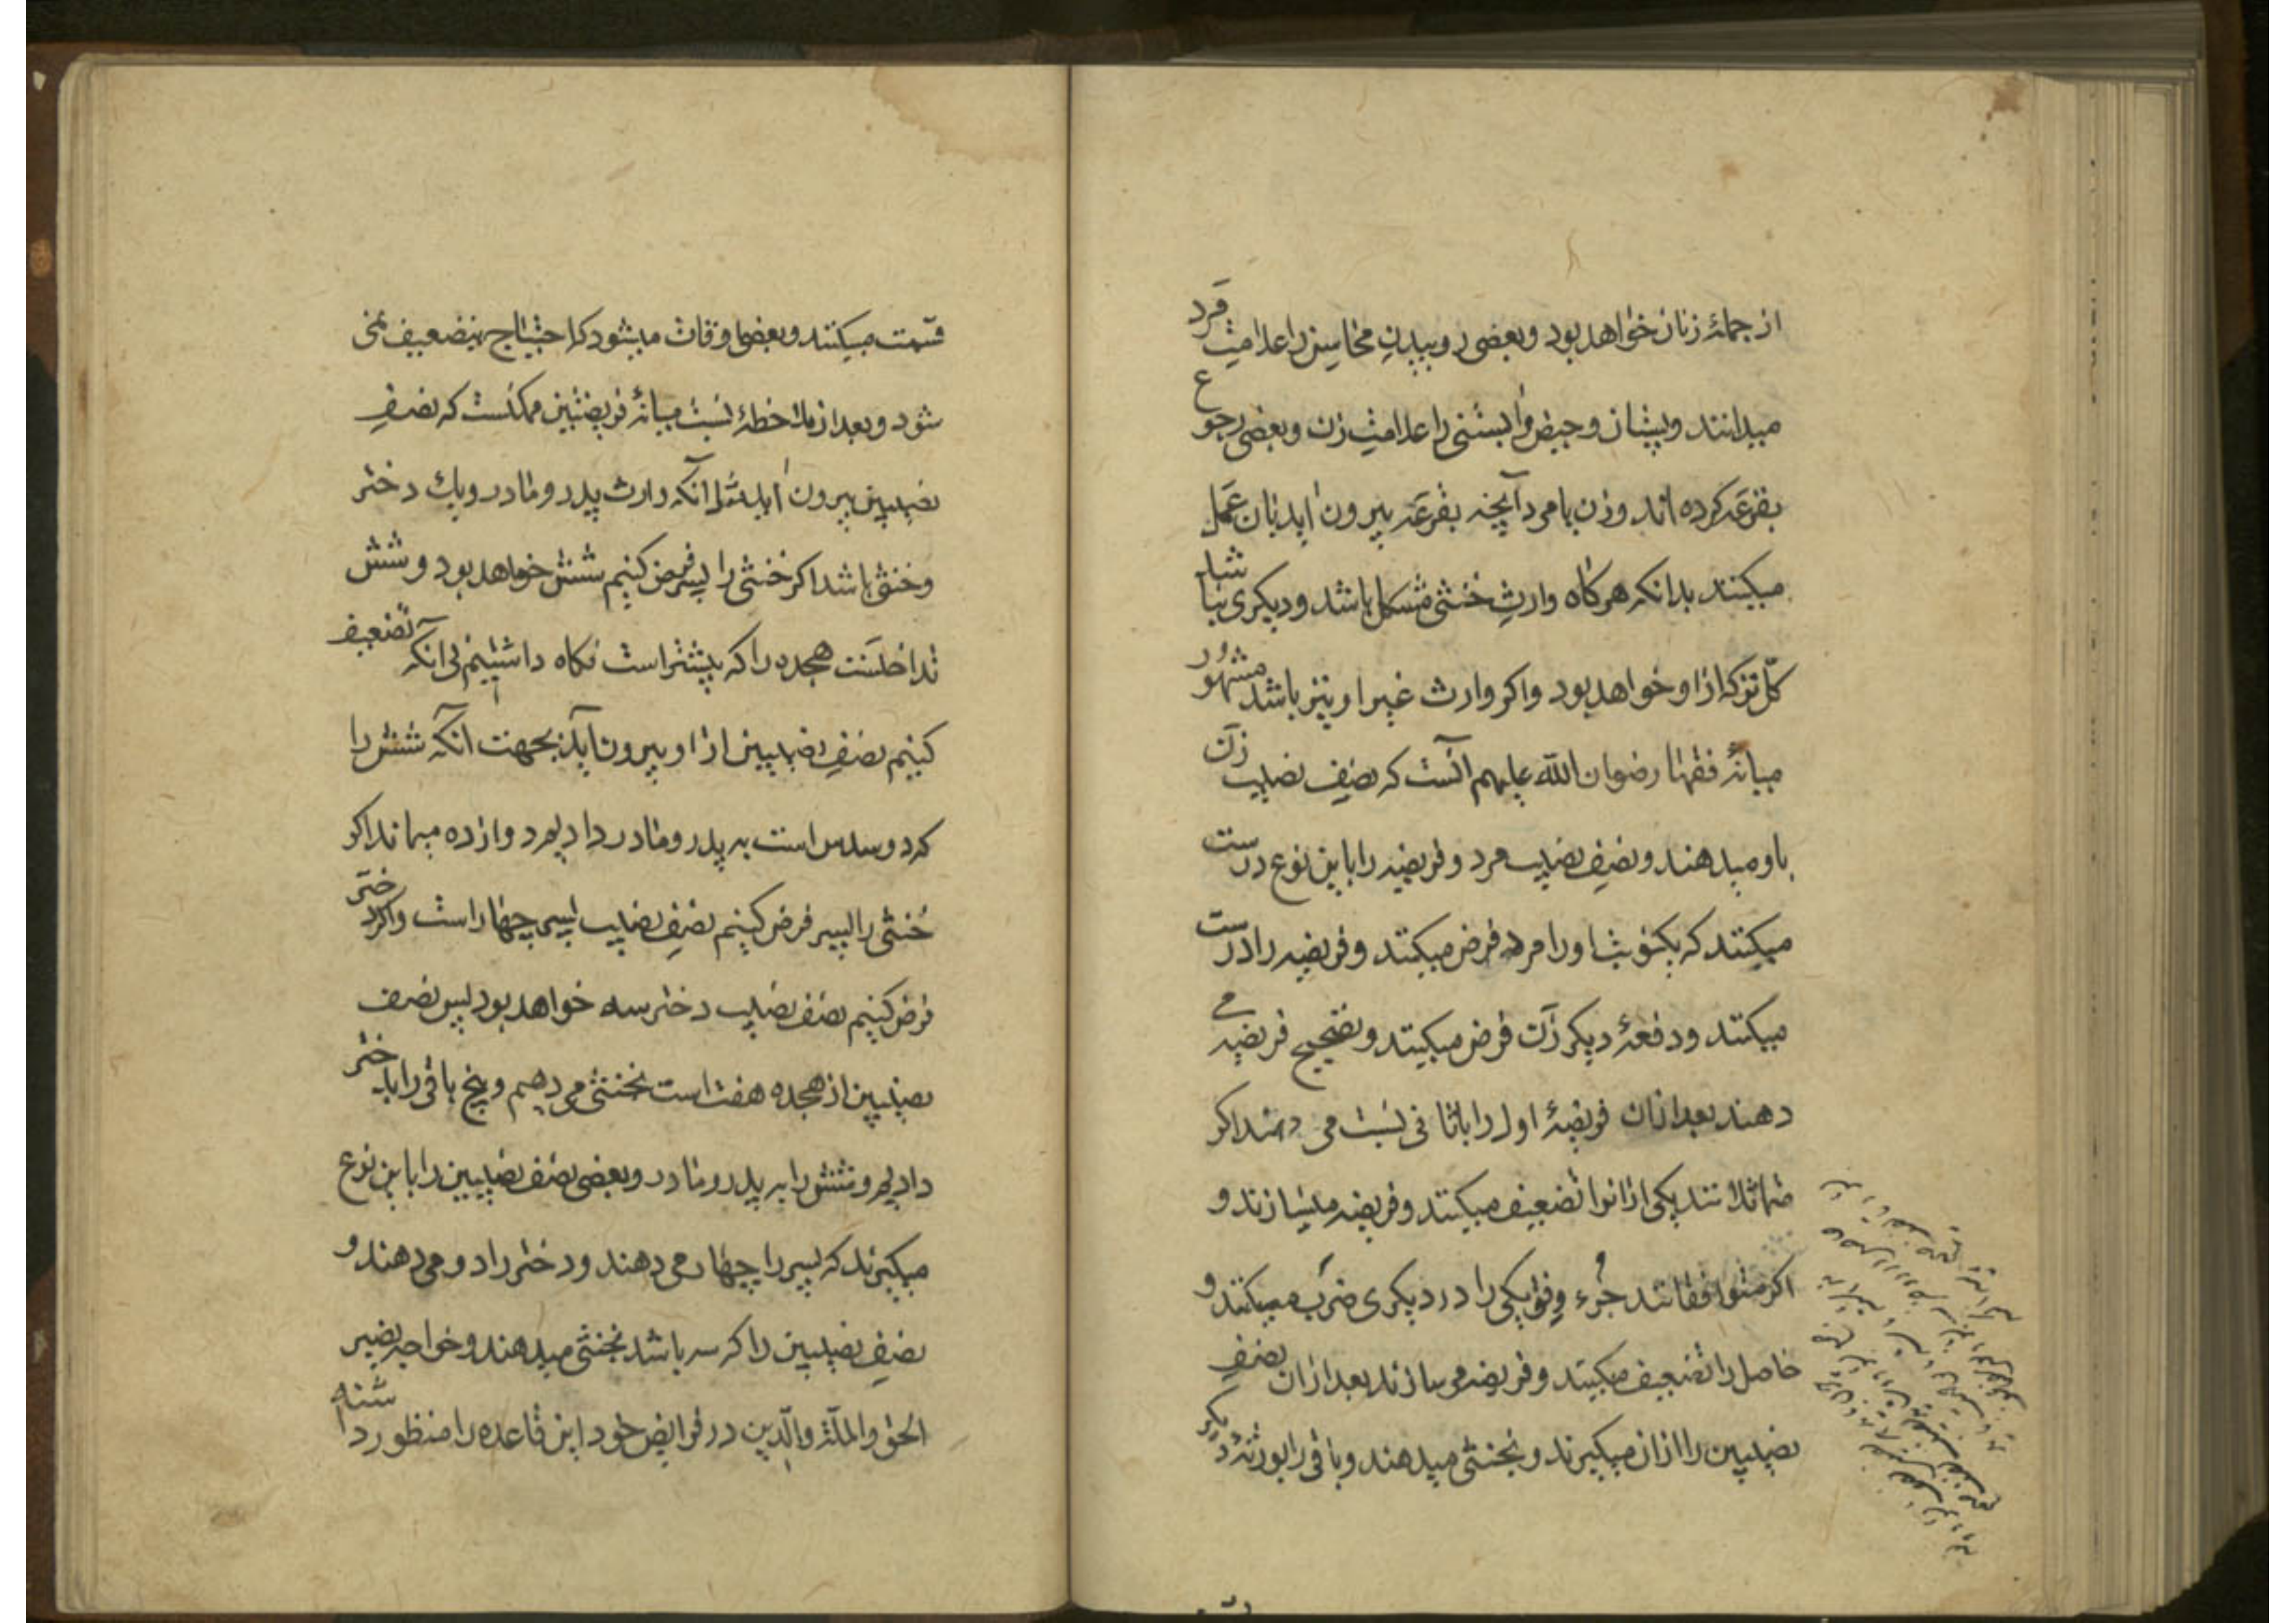 از جملهٔ زنان خواهد بود و بعضی روییدن محاسن را علامت مرد
میدانند و پستان و حیض و آبستنی را علامت زن و بعضی رجوع
بقرعه کرده اند و زن یا مرد آنچه بقرعه بیرون آید بآن عمل
میکنند بدانکه هرکاه وارث خنثی مشکل باشد و دیکری نباشد
کل ترکه از او خواهد بود و اکر وارث غیر او نیز باشد مشهور
میانهٔ فقها رضوان الله علیهم آنست که نصف نصیب زن
باو میدهند و نصف نصیب مرد و فریضه را باین نوع درست
میکنند که یکنوبت او را مرد فرض میکنند و فریضه را درست
میکنند و دفعهٔ دیکر زن فرض میکنند و تصحیح فریضه می
دهند بعد از ان فریضهٔ اول را با ثانی نسبت می دهند اکر
متماثلانند یکی از انرا تضعیف میکنند و فریضه میسازند و
اکر متوافقانند جزء وفق یکی را در دیکری ضرب میکنند و
حاصل را تضعیف میکنند و فریضه می سازند بعد از ان نصف
نصیبین را از ان میکیرند و بخنثی میدهند و باقی را بورثهٔ دیکر
قسمت میکنند و بعضی اوقات میشود که احتیاج بتضعیف نمی
شود و بعد از ملاحظهٔ نسبت میانهٔ فریضتین ممکنست که نصف
نصیبین بیرون آید مثلا آنکه وارث پدر و مادر و یک دختر
و خنثی باشد اکر خنثی را پسر فرض کنیم شش خواهد بود و شش
تداخلست هجده را که بیشتر است نکاه داشتیم بی آنکه تضعیف
کنیم نصف نصیبین از او بیرون آید بجهت آنکه شش را
که دو سدس است به پدر و مادر دادیم دوازده میماند اکر
خنثی را پسر فرض کنیم نصف نصیب پسر چهار است و اکر دختر
فرض کنیم نصف نصیب دختر سه خواهد بود پس نصف
نصیبین از هجده هفت است بخنثی می دهیم و پنج باقی را بدختر
دادیم و شش را به پدر و مادر و بعضی نصف نصیبین را باین نوع
میکیرند که پسر را چهار می دهند و دختر را دو می دهند و
نصف نصیبین را که سه باشد بخنثی میدهند و خواجه نصیر
الحق والملة والدین در فرایض خود این قاعده را منظور داشته